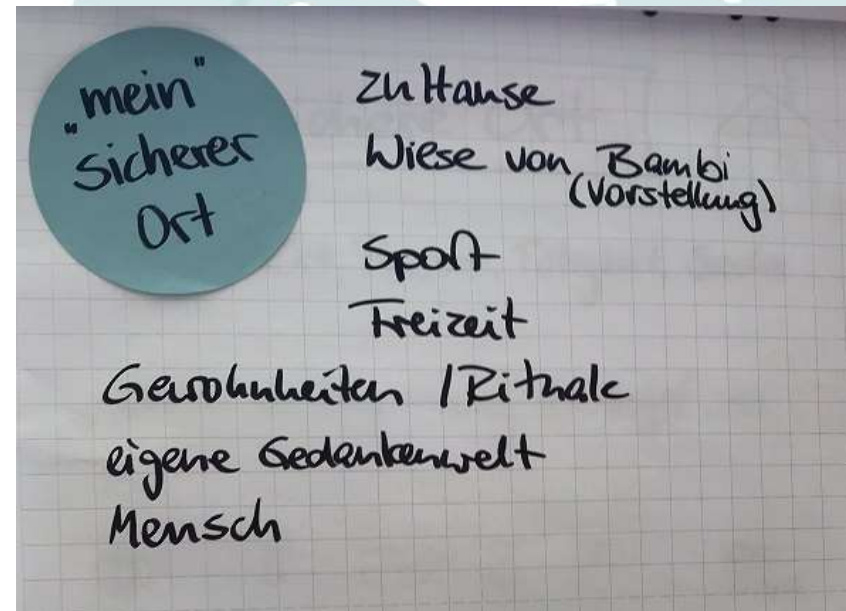 "mein"
sicherer
Ort
zu Hause
Wiese von Bambi
(Vorstellung)
Sport
Freizeit
Gewohnheiten / Rituale
eigene Gedankenwelt
Mensch